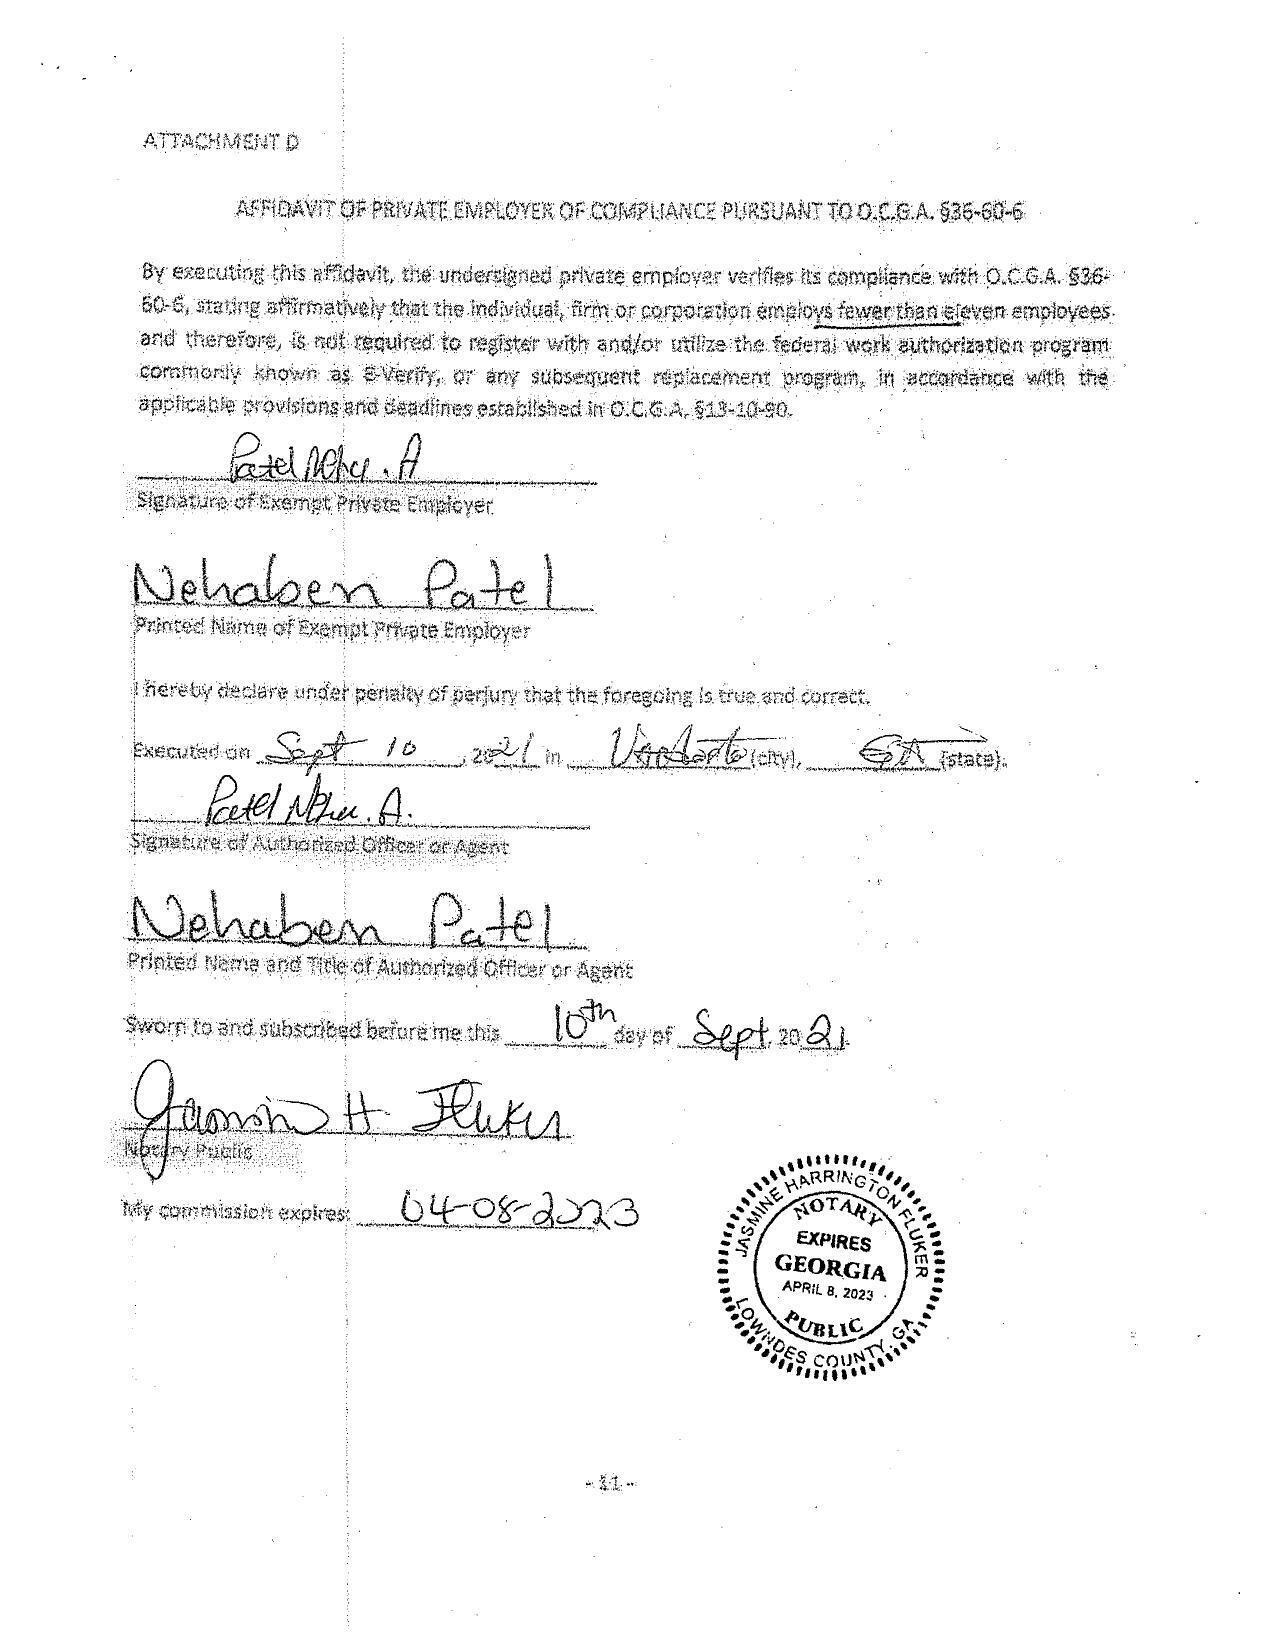 ATTACHMENT D
AFFIDAVIT OF PRIVATE EMPLOYER OF COMPLIANCE PURSUANT TO O.C.G.A. §36-60-6
By executing this affidavit, the undersigned private employer verifies its compliance with O.C.G.A. §36-
60-6, stating affirmatively that the individual, firm or corporation employs fewer than eleven employees
and therefore, is not required to register with and/or utilize the federal work authorization program
commonly known as E-Verify, or any subsequent replacement program, in accordance with the
applicable provisions and deadlines established in O.C.G.A. §13-10-90.
Patel Neha . A
Signature of Exempt Private Employer
Nehaben Patel
Printed Name of Exempt Private Employer
I hereby declare under penalty of perjury that the foregoing is true and correct.
Executed on Sept 10, 2021 in (city), GA (state).
Patel Neha . A.
Signature of Authorized Officer or Agent
Nehaben Patel
Printed Name and Title of Authorized Officer or Agent
Sworn to and subscribed before me this 10th day of Sept, 2021.
H. Fluker
Notary Public
My commission expires: 04-08-2023
JASMINE HARRINGTON FLUKER
NOTARY
EXPIRES
GEORGIA
APRIL 8, 2023
PUBLIC
LOWNDES COUNTY, GA
- 11 -